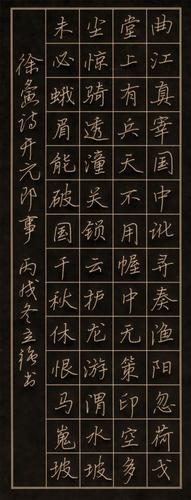 曲江真宰国中讹寻奏渔阳忽荷戈
堂上有兵天不用幄中无策印空多
尘惊骑透潼关锁云护龙游渭水坡
未必蛾眉能破国千秋休恨马嵬坡
徐夤诗开元即事 丙戌冬立强书